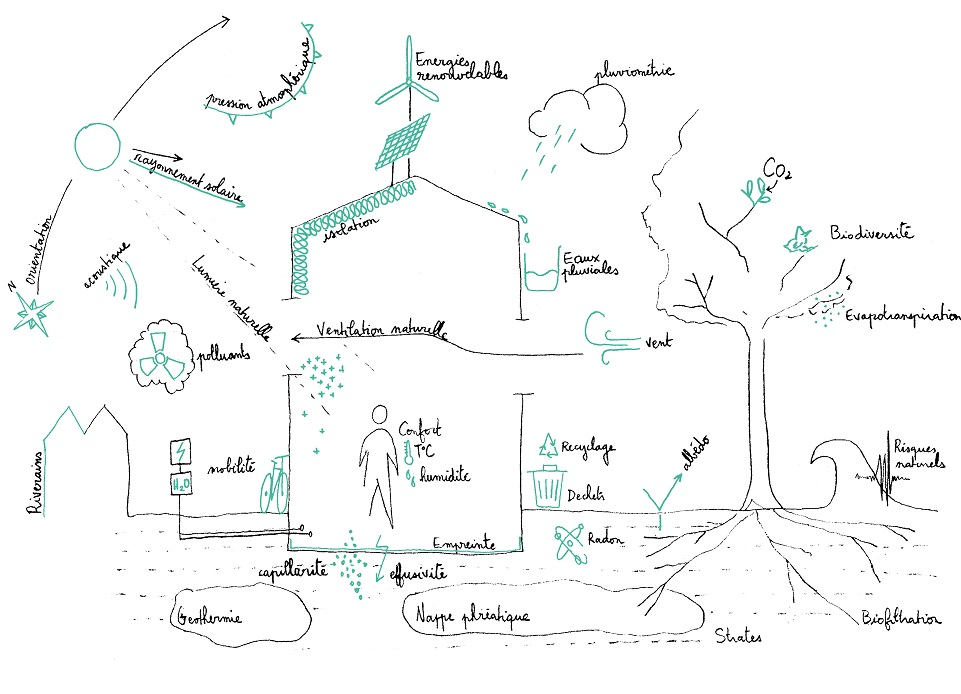 pression atmosphérique
Energies
renouvelables
pluviométrie
CO2
rayonnement solaire
isolation
orientation
N
acoustique
Lumière naturelle
Eaux
pluviales
Biodiversité
Evapotranspiration
Ventilation naturelle
vent
polluants
Confort
T°C
humidité
Recyclage
Déchets
albédo
Risques
naturels
Riverains
mobilité
H2O
Radon
Empreinte
capillarité
effusivité
Geothermie
Nappe phréatique
Strates
Biofiltration